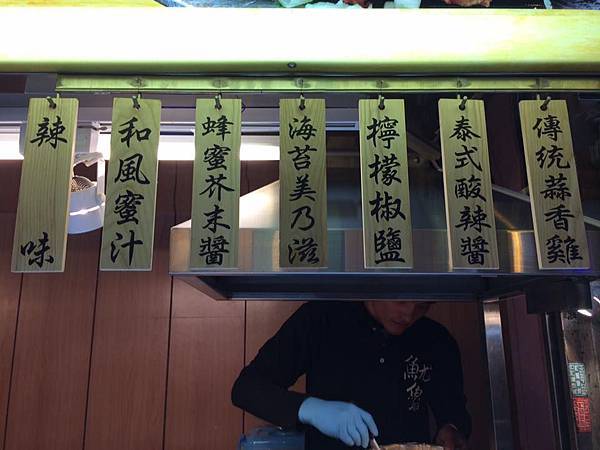 傳統蒜香雞
泰式酸辣醬
檸檬椒鹽
海苔美乃滋
蜂蜜芥末醬
和風蜜汁
辣味
魷魯